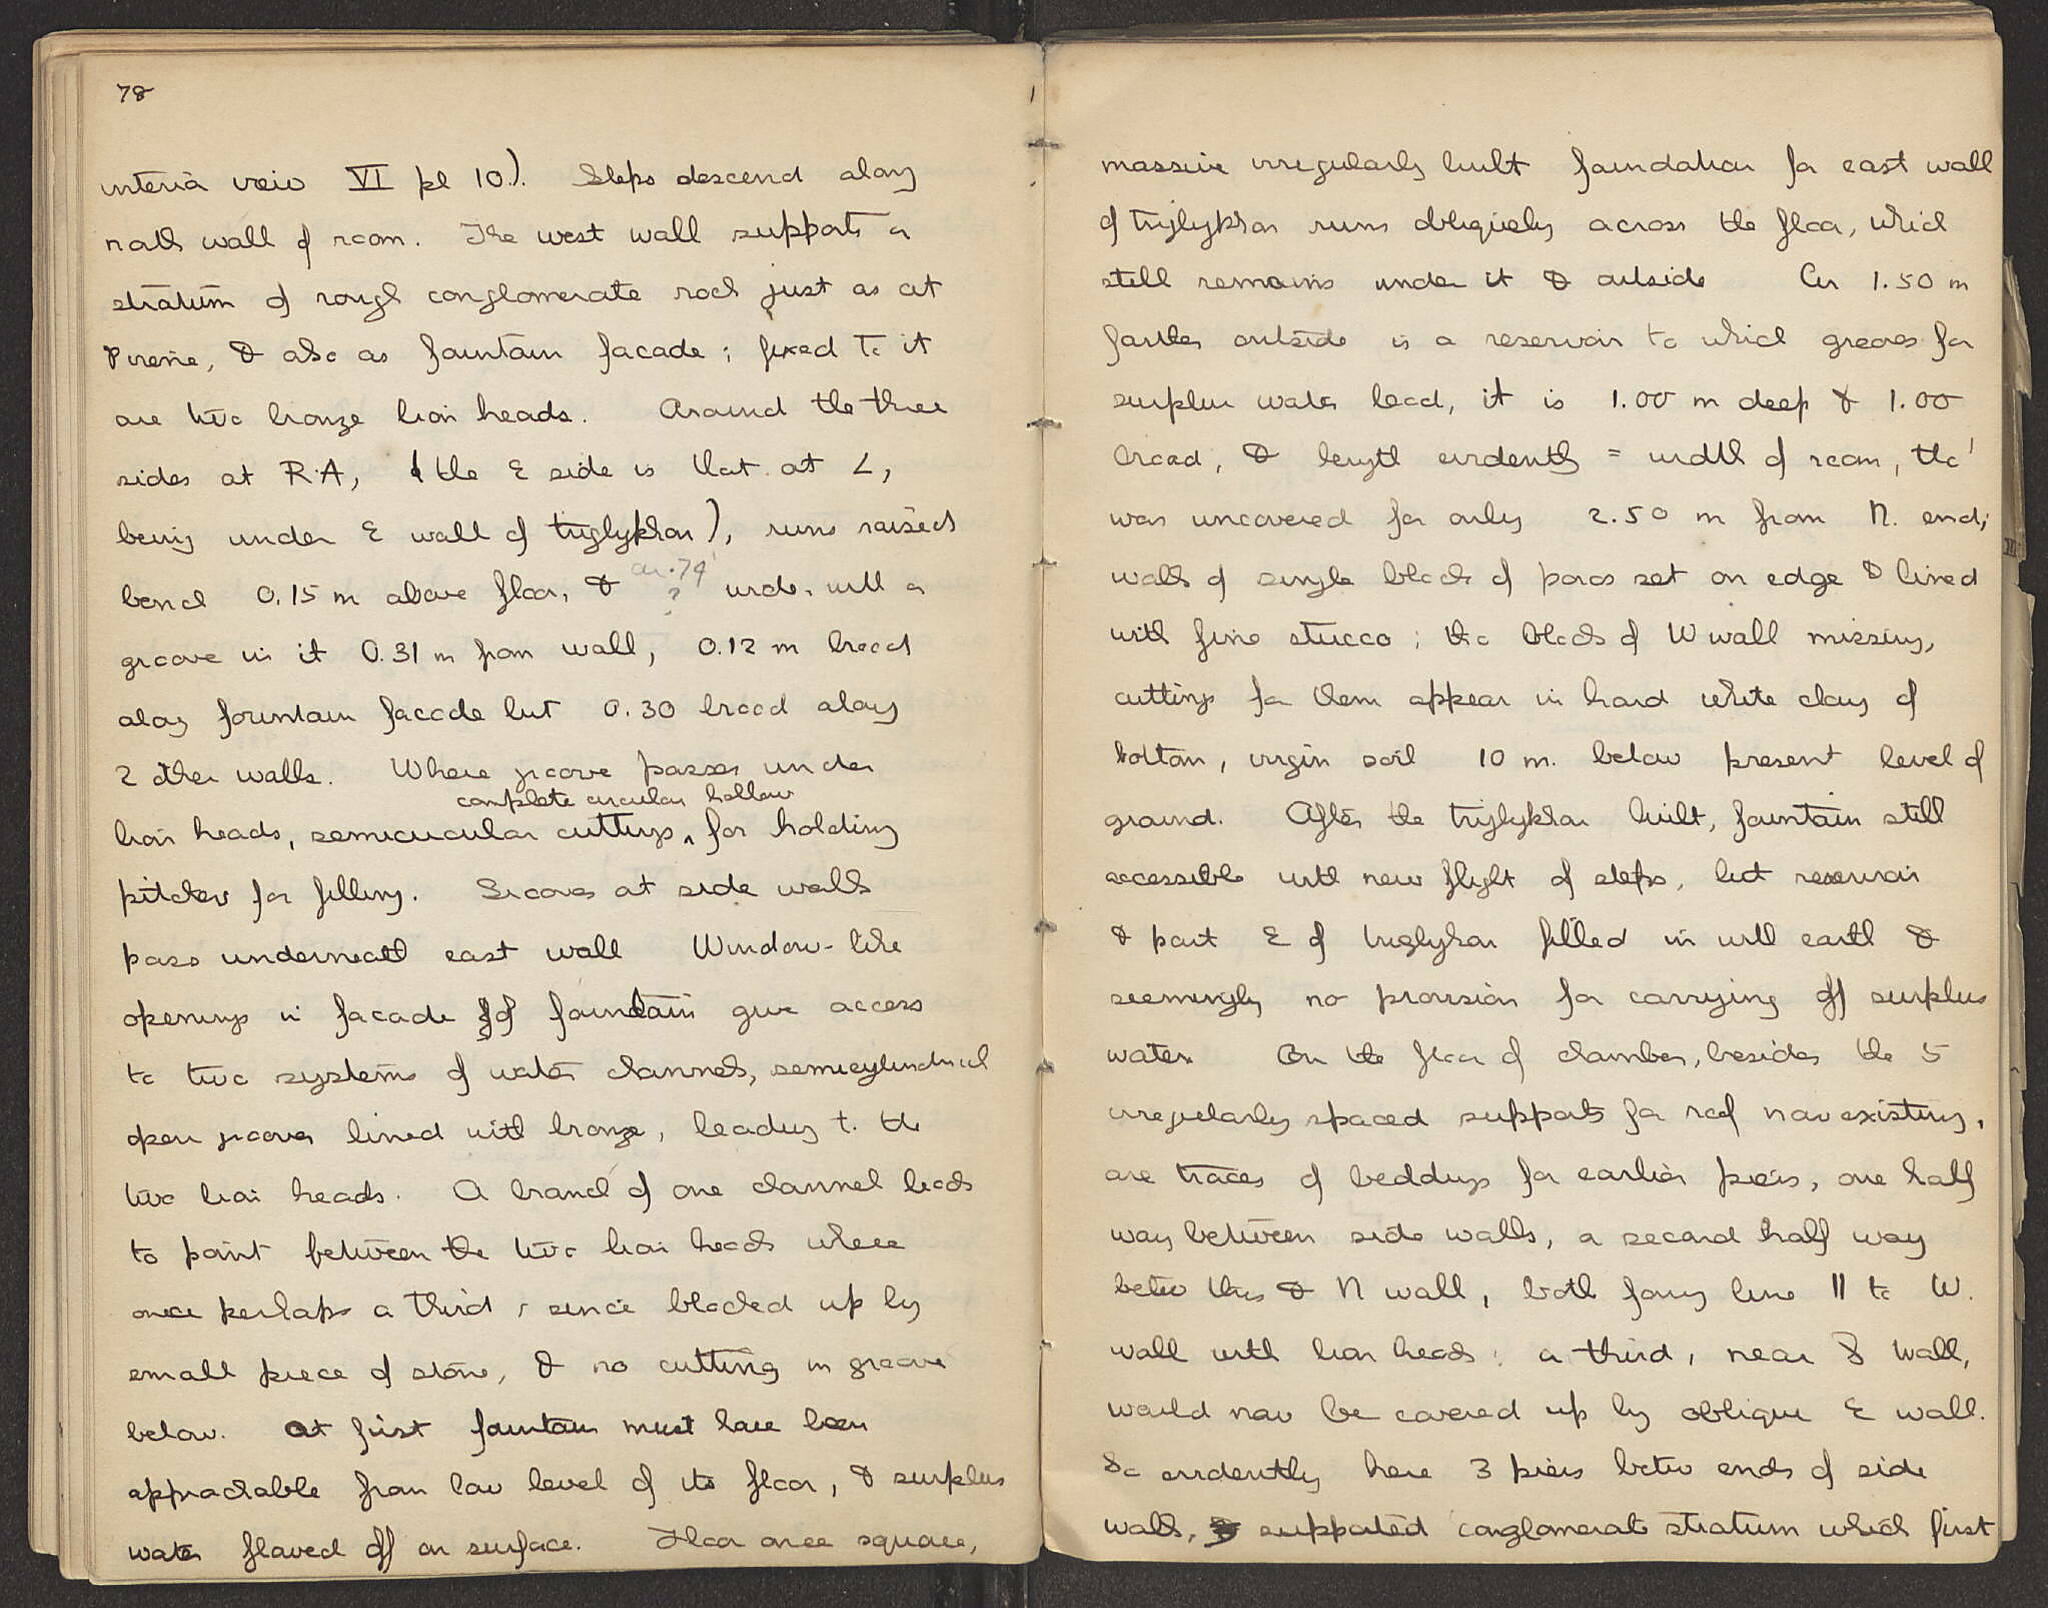 78
interior view VI pl 10). Steps descend along
north wall of room. The west wall supports a
stratum of rough conglomerate rock just as at
Pirene, & also as fountain facade; fixed to it
are two bronze lion heads. Around the three
sides at R·A, (the E side is that at L,
being under E wall of triglykhon), runs raised
bench 0.15 m above floor, & ca. 74 ? wide, with a
groove in it 0.31 m from wall, 0.12 m broad
along fountain facade but 0.30 broad along
2 other walls. Where groove passes under
complete circular hollow
lion heads, semicircular cuttings ‸ for holding
pitcher for filling. Grooves at side walls
pass underneath east wall Window-like
openings in facade of fountain give access
to two systems of water channels, semicylindrical
open grooves lined with bronze, leading to the
two lion heads. A branch of one channel leads
to point between the two lion heads where
once perhaps a third, since blocked up by
small piece of stone, & no cutting in groove
below. At first fountain must have been
approachable from low level of its floor, & surplus
water flowed off on surface. Floor once square,
massive irregularly built foundation for east wall
of triglykhon runs obliquely across the floor, which
still remains under it & outside Ca 1.50 m
farther outside is a reservoir to which grooves for
surplus water lead, it is 1.00 m deep & 1.00
broad, & length evidently = width of room, tho'
was uncovered for only 2.50 m from N. end;
walls of single blocks of poros set on edge & lined
with fine stucco; tho blocks of W wall missing,
cuttings for them appear in hard white clay of
bottom, virgin soil 10 m. below present level of
ground. After the triglykhon built, fountain still
accessible with new flight of steps, but reservoir
& part E of triglykhon filled in with earth &
seemingly no provision for carrying off surplus
water. On the floor of chamber, besides the 5
irregularly spaced supports for roof now existing,
are traces of beddings for earlier piers, one half
way between side walls, a second half way
betw this & N wall, both formg line || to W.
wall with lion heads; a third, near S wall,
would now be covered up by oblique E wall.
So evidently here 3 piers betw ends of side
walls, supported conglomerate stratum which first